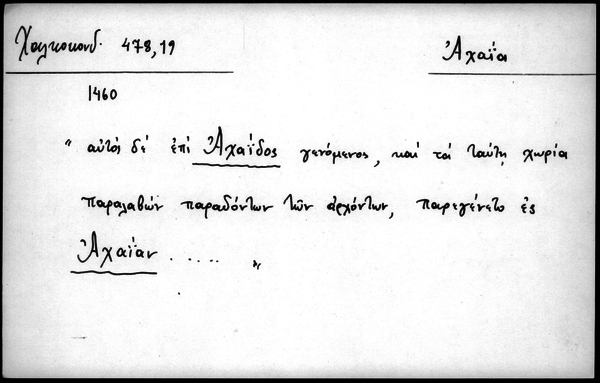 Χαλκοκονδ. 478,19
Ἀχαΐα
1460
"αὐτὸς δὲ ἐπὶ Ἀχαΐδος γενόμενος, καὶ τὰ ταύτῃ χωρία
παραλαβὼν παραδόντων τῶν ἀρχόντων, παρεγένετο ἐς
Ἀχαΐαν ...... "